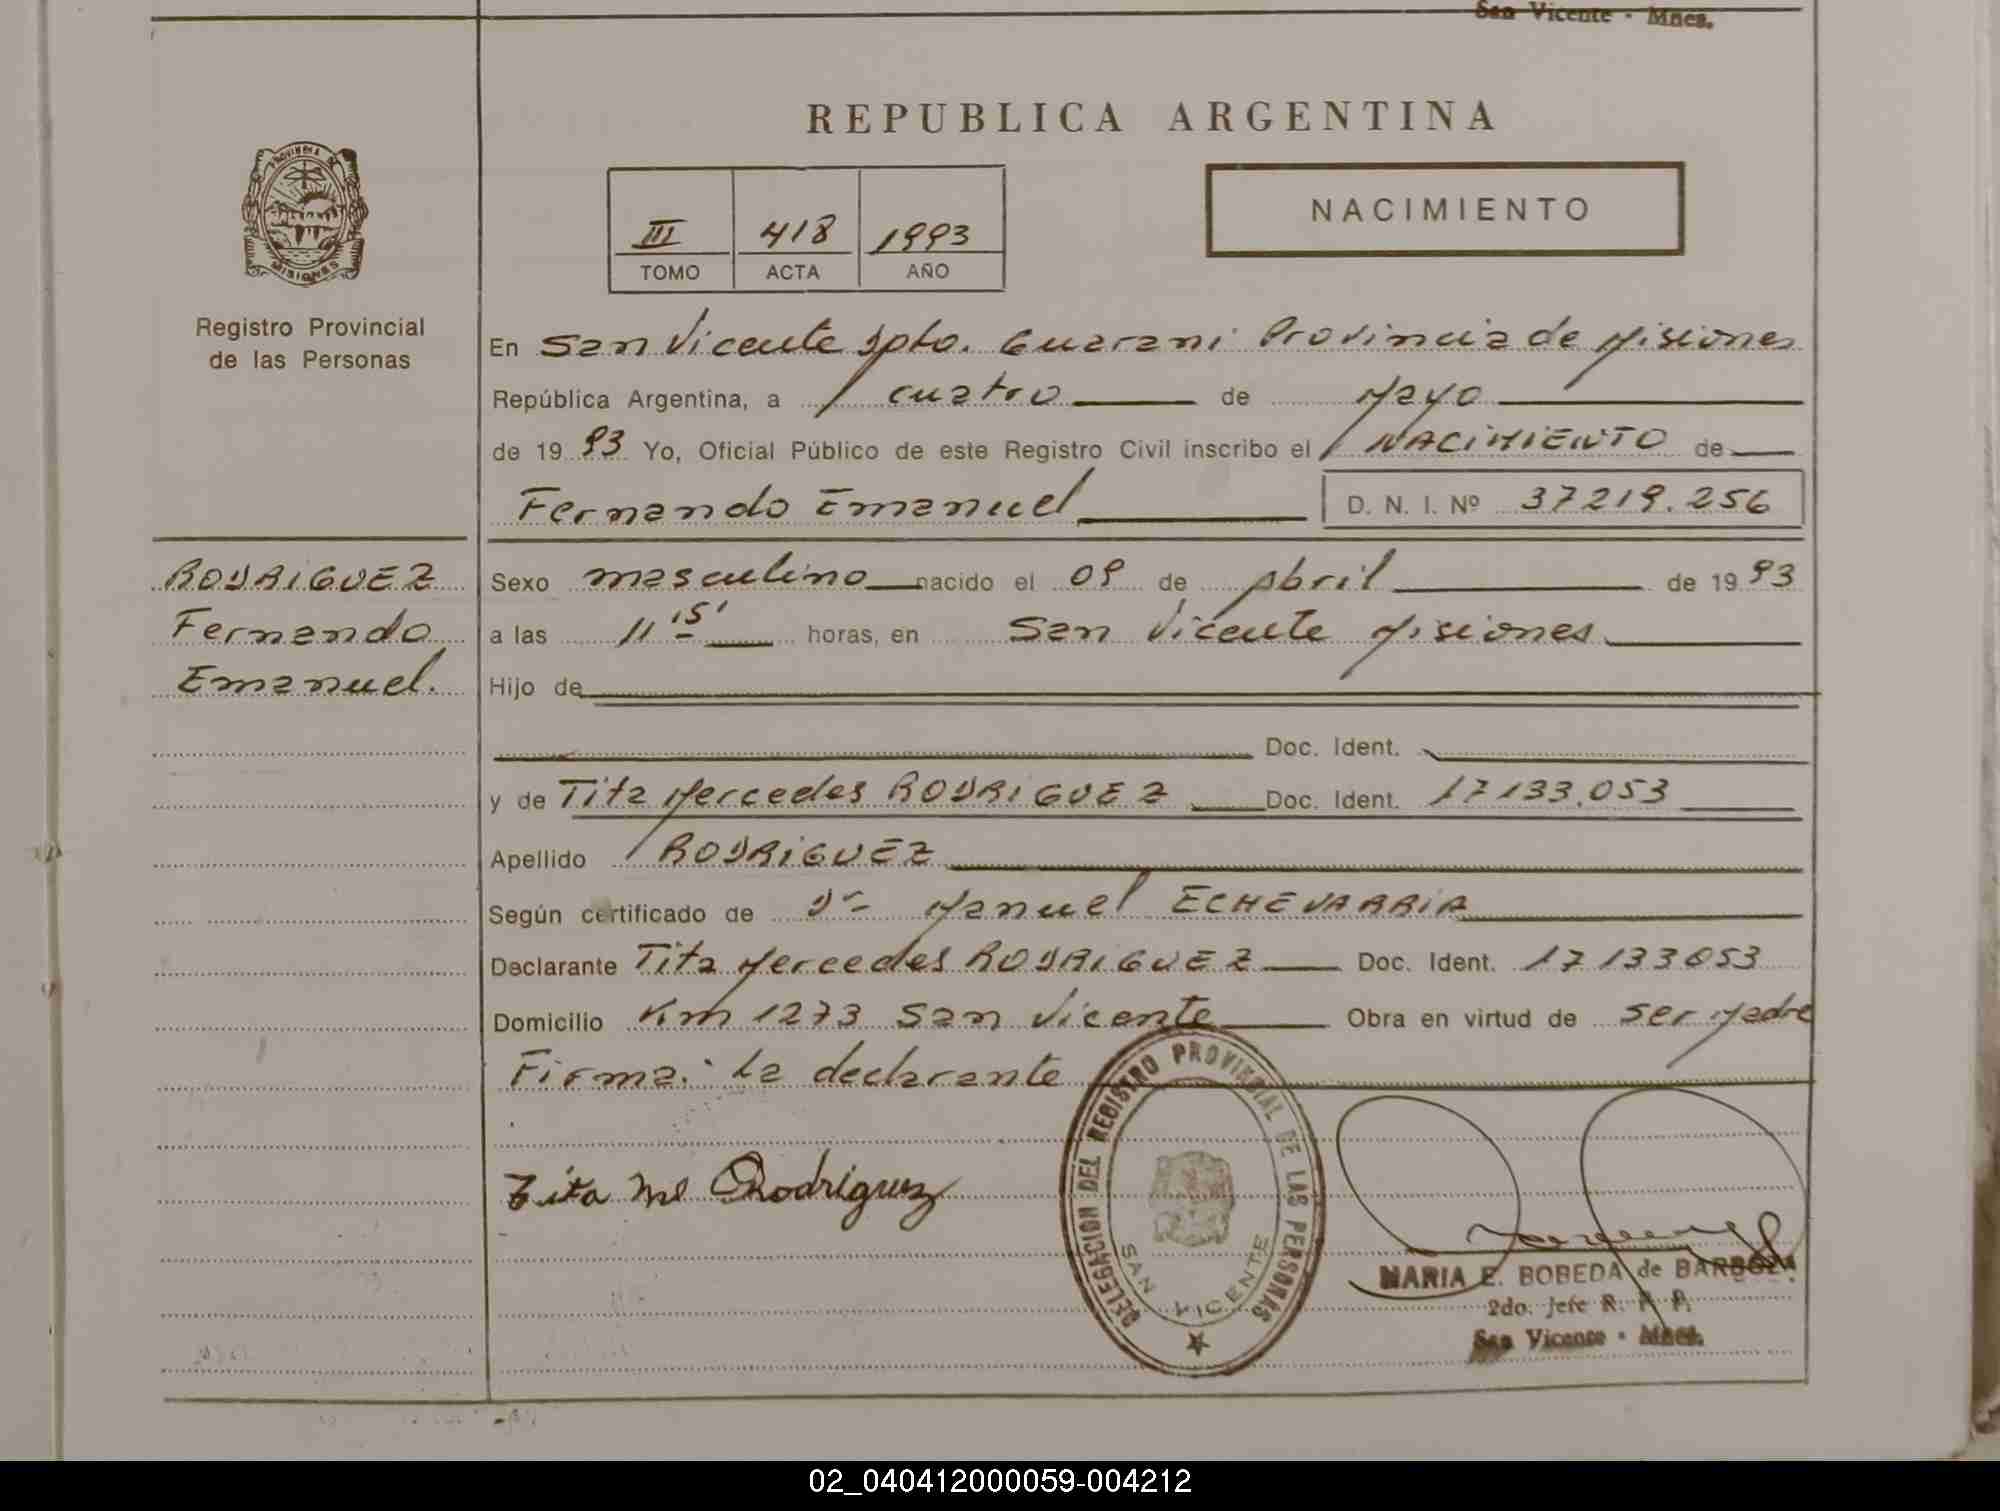 San Vicente - Mnes.
REPUBLICA ARGENTINA
PROVINCIA DE
MISIONES
Registro Provincial
de las Personas
III 418 1993
TOMO ACTA AÑO
NACIMIENTO
En San Vicente Dpto. Guarani Provincia de Misiones
República Argentina, a cuatro de Mayo
de 1993 Yo, Oficial Público de este Registro Civil inscribo el NACIMIENTO de
Fernando Emanuel D. N. I. Nº 37219.256
RODRIGUEZ
Fernando
Emanuel.
Sexo masculino nacido el 09 de Abril de 1993
a las 11 15' horas, en San Vicente Misiones
Hijo de
Doc. Ident.
y de Tita Mercedes RODRIGUEZ Doc. Ident. 17133.053
Apellido RODRIGUEZ
Según certificado de Dr Manuel ECHEVARRIA
Declarante Tita Mercedes RODRIGUEZ Doc. Ident. 17133053
Domicilio Km 1273 San Vicente Obra en virtud de ser Madre
Firma: La declarante
Tita Me Rodriguez
DELEGACION DEL REGISTRO PROVINCIAL DE LAS PERSONAS
SAN VICENTE
MARIA E. BOBEDA de BARBOZA
2do. Jefe R. P. P.
San Vicente - Mnes.
02_040412000059-004212